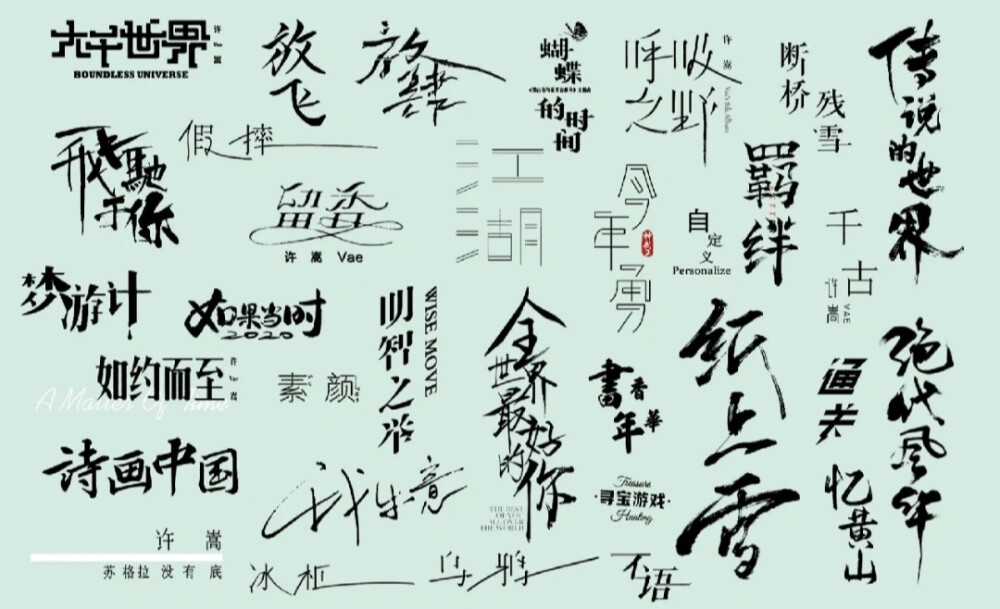 大千世界
许嵩
BOUNDLESS UNIVERSE
放飞
放肆
蝴蝶
的时间
呼吸
之野
许嵩
Vae's 8th Album
断桥
残雪
传说的世界
飛馳
于你
假摔
留香
许嵩 Vae
江湖
今年勇
自定义
Personalize
羁绊
千古
许嵩
VAE
梦游计
如果当时
2020
明智之举
WISE MOVE
全世界最好的你
THE BEST
OF YOU
ALL OVER
THE WORLD
纸上雪
绝代风华
如约而至
许嵩
A Matter Of Time
素颜
書香
年華
通关
诗画中国
我乐意
Treasure
·寻宝游戏·
Hunting
忆黄山
许嵩
苏格拉没有底
冰柜
乌鸦
不语